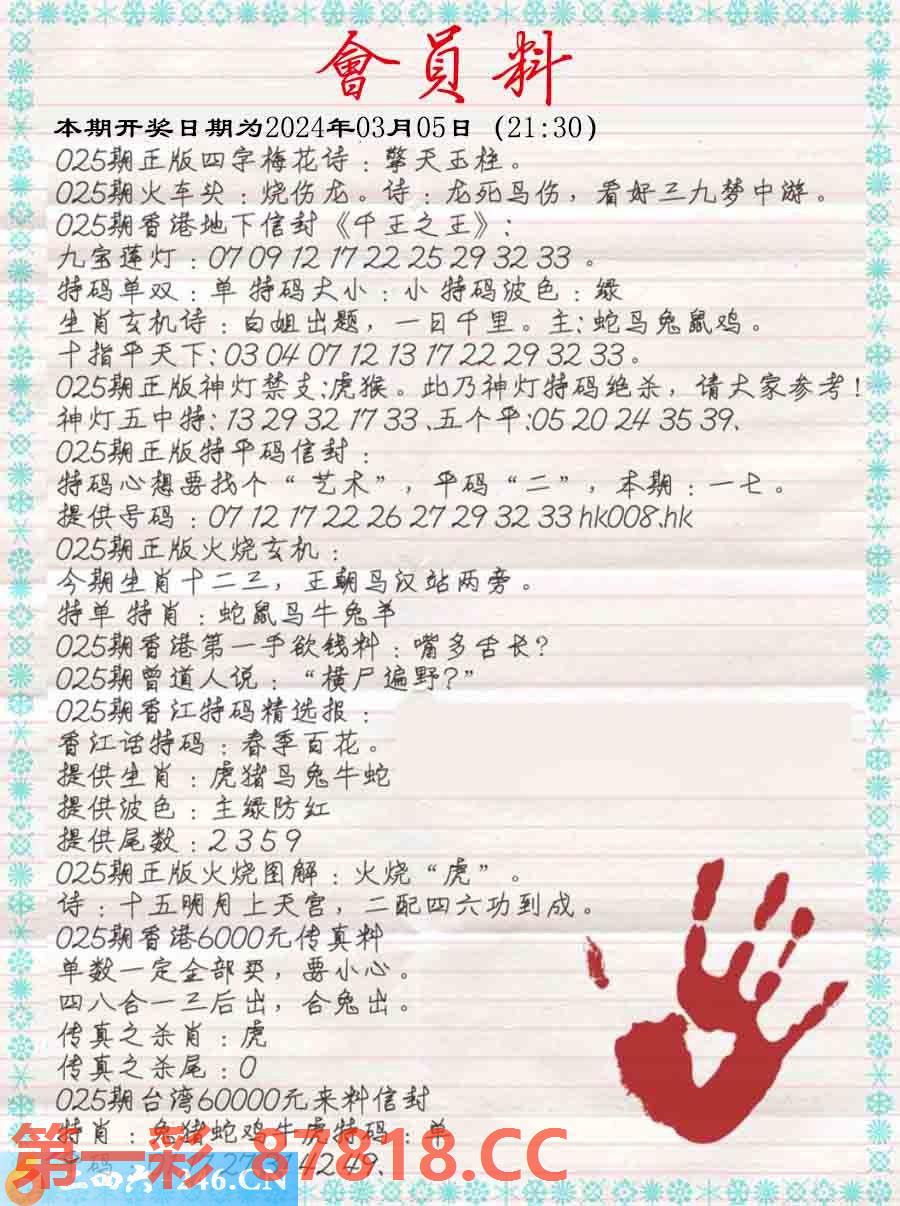 會員料
本期开奖日期为2024年03月05日（21:30）
025期正版四字梅花诗：擎天玉柱。
025期火车头：烧伤龙。诗：龙死马伤，看好三九梦中游。
025期香港地下信封《千王之王》：
九宝莲灯：07 09 12 17 22 25 29 32 33 。
特码单双：单 特码大小：小 特码波色：绿
生肖玄机诗：白姐出题，一日千里。主：蛇马兔鼠鸡。
十指平天下：03 04 07 12 13 17 22 29 32 33。
025期正版神灯禁支：虎猴。此乃神灯特码绝杀，请大家参考！
神灯五中特：13 29 32 17 33 、五个平：05 20 24 35 39、
025期正版特平码信封：
特码心想要找个“艺术”，平码“二”，本期：一七。
提供号码：07 12 17 22 26 27 29 32 33 hk008.hk
025期正版火烧玄机：
今期生肖十二三，王朝马汉站两旁。
特单 特肖：蛇鼠马牛兔羊
025期香港第一手欲钱料：嘴多舌长？
025期曾道人说：“横尸遍野？”
025期香江特码精选报：
香江话特码：春季百花。
提供生肖：虎猪马兔牛蛇
提供波色：主绿防红
提供尾数：2 3 5 9
025期正版火烧图解：火烧“虎”。
诗：十五明月上天宫，二配四六功到成。
025期香港6000元传真料
单数一定全部买，要小心。
四八合一三后出，合兔出。
传真之杀肖：虎
传真之杀尾：0
025期台湾60000元来料信封
特肖：兔猪蛇鸡牛虎特码：单
27 31 42 49、
第一彩 87818.CC
二四六 246.CN